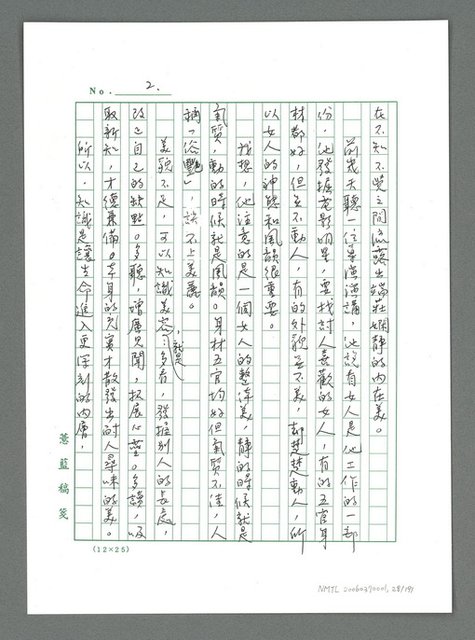 No. 2.
在不知不覺之間流露出端莊嫻靜的內在美。
前幾天聽一位導演演講，他說看女人是他工作的一部
份，他發掘電影明星，要找討人喜歡的女人，有的五官身
材都好，但並不動人，有的外貌並不美，卻楚楚動人，所
以女人的神態和風韻很重要。
我想，他注意的是一個女人的整体美，靜的時候就是
氣質，動的時候就是風韻。身材五官均好但氣質不佳，人
稱「俗艷」，談不上美麗。
美貌不足，可以知識美容，就是：多看，發掘別人的長處，
改正自己的缺點。多聽，增廣見聞，拓展心靈。多讀，吸
取新知，才德兼備。本身的充實才散發出耐人尋味的美。
所以，知識是讓生命進入更深刻的內層，
蕙藍稿箋
(12×25)
NMTL 20060390001, 28/191